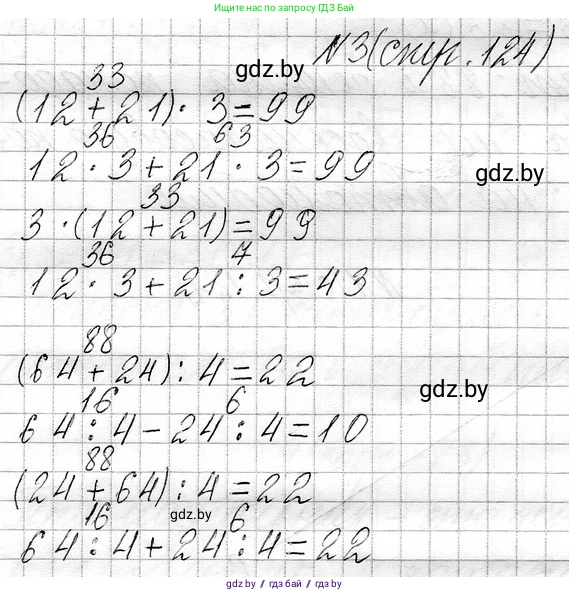 Ищите нас по запросу ГДЗ Бай
N3 (стр. 124)
gdz.by
33
(12 + 21) · 3 = 99
36 63
12 · 3 + 21 · 3 = 99
gdz.by
33
3 · (12 + 21) = 99
36 7
12 · 3 + 21 : 3 = 43
88
(64 + 24) : 4 = 22
gdz.by
16 6
64 : 4 - 24 : 4 = 10
88
(24 + 64) : 4 = 22
16 gdz.by 6
64 : 4 + 24 : 4 = 22
gdz by / гдз бай / gdz by